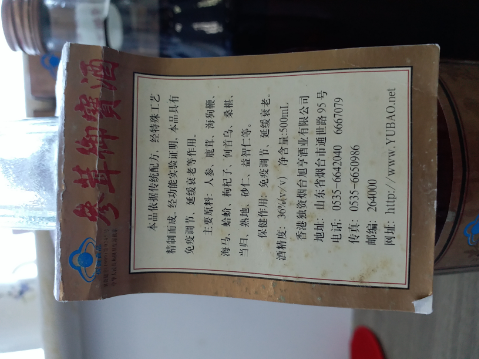 参茸御寶酒
本品依据传统配方、经特殊工艺
精制而成,经功能实验证明,本品具有
免疫调节、延缓衰老等作用。
主要原料:人参、鹿茸、海狗鞭、
海马、蛤蚧、枸杞子、何首乌、桑椹、
当归、熟地、砂仁、益智仁等。
保健作用:免疫调节、延缓衰老。
酒精度:36%(v/v) 净含量:500mL
香港独资烟台旭亨酒业有限公司
地址:山东省烟台市通世路95号
电话:0535-6642040 6667079
传真:0535-6650986
邮编:264000
网址:http://www.YUBAO.net